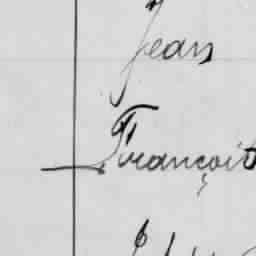 Jean
François